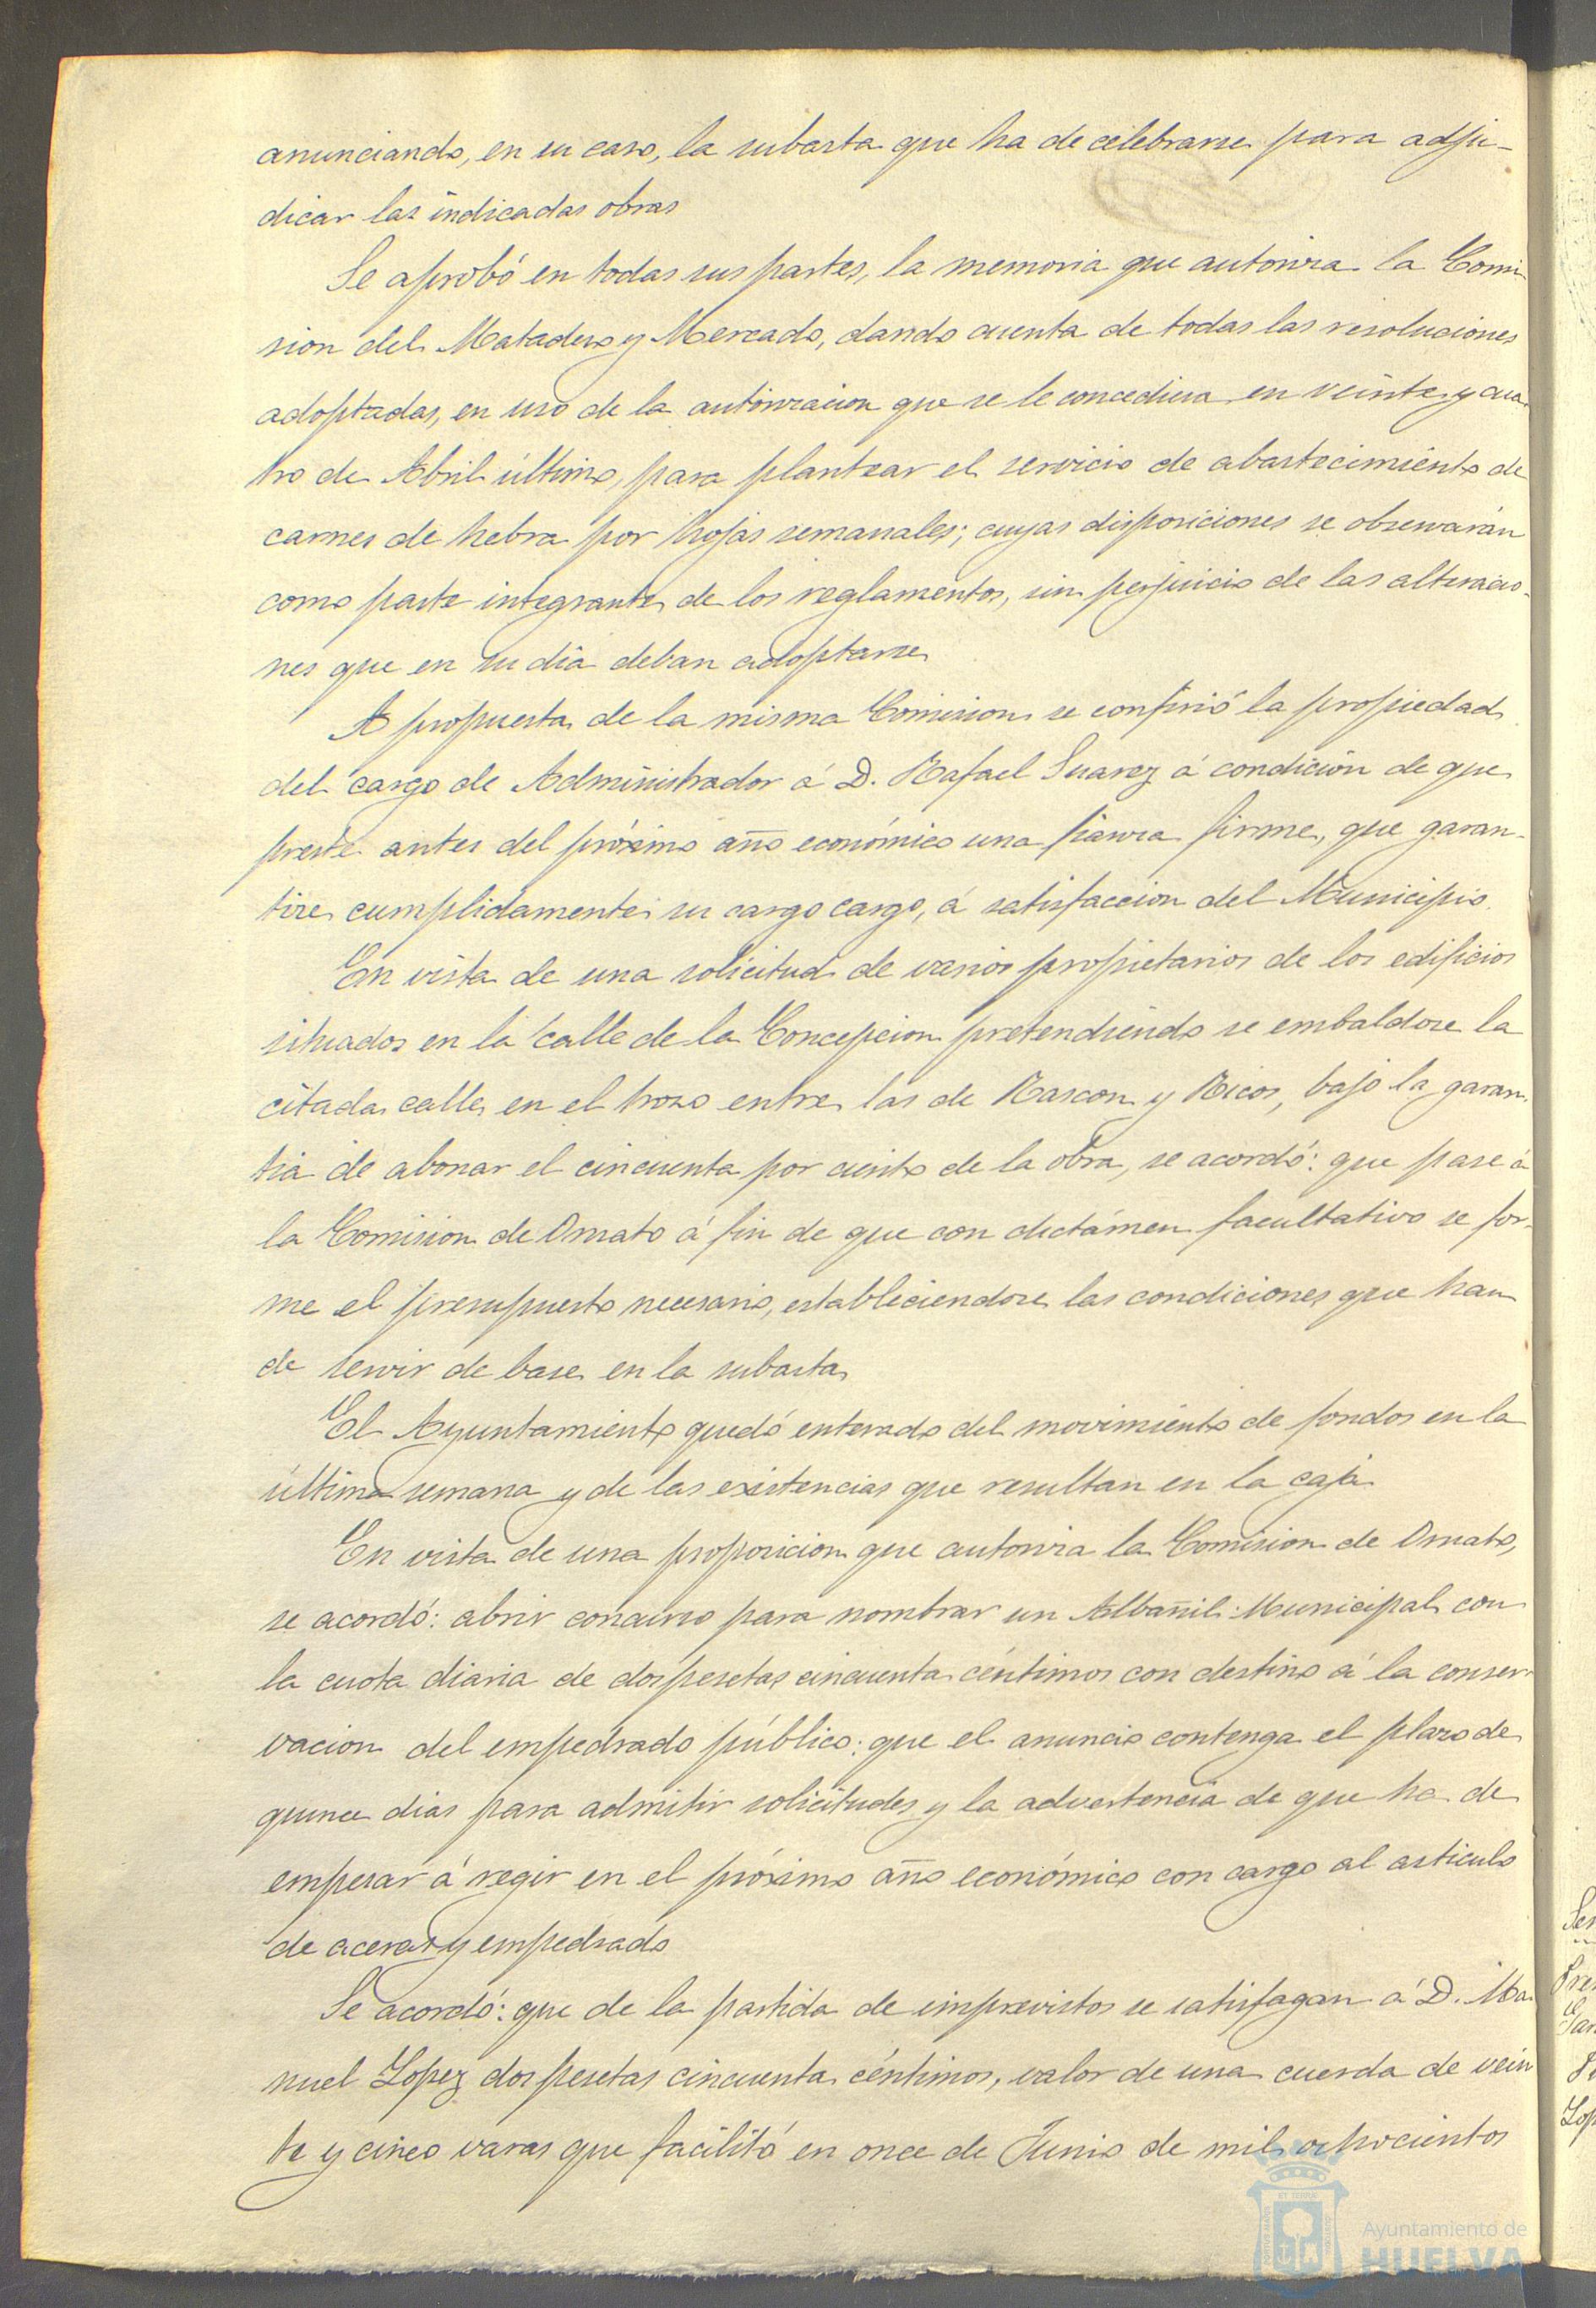 anunciando, en su caso, la subasta que ha de celebrarse para adju-
dicar las indicadas obras
Se aprobó en todas sus partes, la memoria que autoriza la Comi-
sion del Matadero y Mercado, dando cuenta de todas las resoluciones
adoptadas, en uso de la autorizacion que se le concediera en veinte y cua-
tro de Abril último, para plantear el servicio de abastecimiento de
carnes de hebra por hojas semanales; cuyas disposiciones se observarán
como parte integrante de los reglamentos, sin perjuicio de las alteracio-
nes que en su dia deban adoptarse
A propuesta de la misma Comision se confirió la propiedad
del cargo de Administrador á D. Rafael Suarez á condición de que
preste antes del próximo año económico una fianza firme, que garan-
tice cumplidamente su cargo cargo, á satisfaccion del Municipio.
En vista de una solicitud de varios propietarios de los edificios
situados en la calle de la Concepcion pretendiendo se embaldose la
citada calle en el trozo entre las de Rascon y Ricos, bajo la garan-
tia de abonar el cincuenta por ciento de la obra, se acordó: que pase á
la Comision de Ornato á fin de que con dictámen facultativo se for-
me el presupuesto necesario, estableciendose las condiciones que han
de servir de base en la subasta
El Ayuntamiento quedó enterado del movimiento de fondos en la
última semana y de las existencias que resultan en la caja
En vista de una proposicion que autoriza la Comision de Ornato,
se acordó: abrir concurso para nombrar un Albañil Municipal con
la cuota diaria de dos pesetas cincuenta céntimos con destino á la conser-
vacion del empedrado público: que el anuncio contenga el plazo de
quince dias para admitir solicitudes y la advertencia de que ha de
empezar á regir en el próximo año económico con cargo al articulo
de aceras y empedrado
Se acordó: que de la partida de imprevistos se satisfagan á D. Ma-
nuel Lopez dos pesetas cincuenta céntimos, valor de una cuerda de vein
te y cinco varas que facilitó en once de Junio de mil ochocientos
Ayuntamiento de
HUELVA